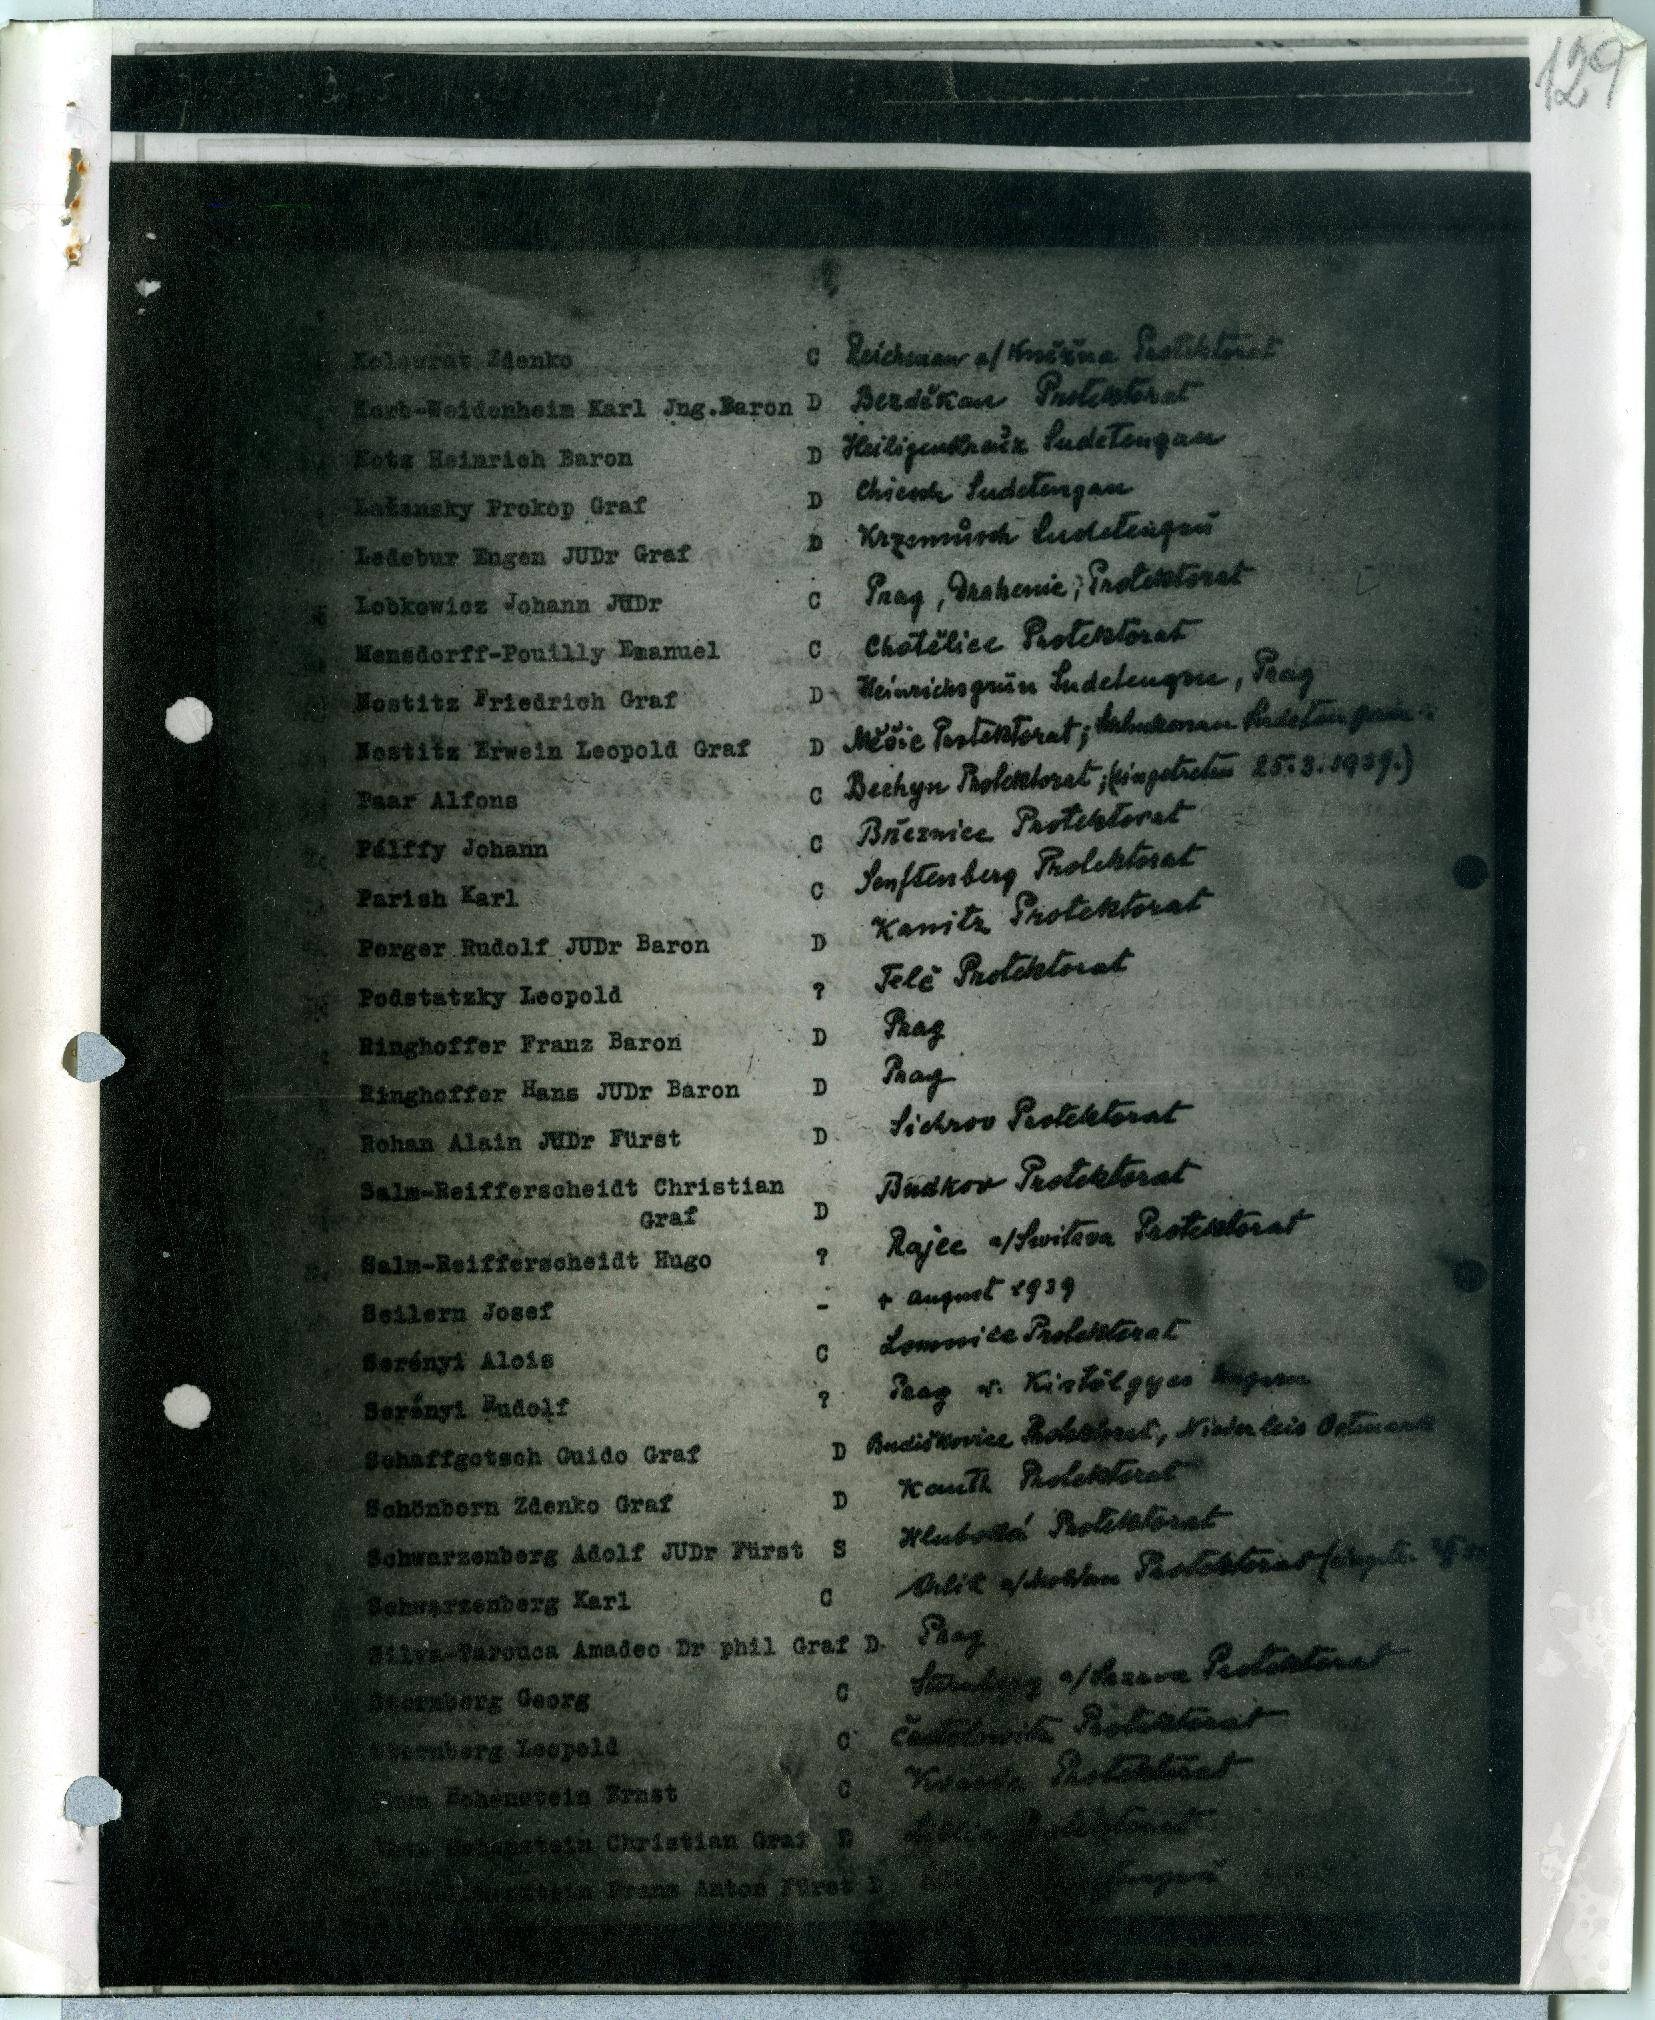 129
Kolowrat Zdenko C Reichenau a/Kněžna Protektorat
Korb-Weidenheim Karl Jng.Baron D Bezděkau Protektorat
Kotz Heinrich Baron D Heiligenkreuz Sudetengau
Lažansky Prokop Graf D Chiesch Sudetengau
Ledebur Eugen JUDr Graf D Krzemusch Sudetengau
Lobkowicz Johann JUDr C Prag, Drahenic, Protektorat
Mensdorff-Pouilly Emanuel C Chotělice Protektorat
Nostitz Friedrich Graf D Heinrichsgrün Sudetengau, Prag
Nostitz Erwein Leopold Graf D Měšic Protektorat; Sudetengau
Paar Alfons C Bechyn Protektorat; (eingetreten 25.3.1939.)
Pálffy Johann C Březnice Protektorat
Parish Karl C Senftenberg Protektorat
Perger Rudolf JUDr Baron D Kanitz Protektorat
Podstatzky Leopold ? Telč Protektorat
Ringhoffer Franz Baron D Prag
Ringhoffer Hans JUDr Baron D Prag
Rohan Alain JUDr Fürst D Sichrov Protektorat
Salm-Reifferscheidt Christian
Graf D Budkov Protektorat
Salm-Reifferscheidt Hugo ? Rajec a/Switava Protektorat
Seilern Josef - + august 1939
Serényi Alois C Lomnice Protektorat
Serényi Rudolf ? Prag Kistölgyes Ungarn
Schaffgotsch Guido Graf D Budiškovice Protektorat, Niederleis Ostmark
Schönborn Zdenko Graf D Kauth Protektorat
Schwarzenberg Adolf JUDr Fürst S Hluboká Protektorat
Schwarzenberg Karl C Orlik a/Moldau Protektorat
Silva-Tarouca Amadeo Dr phil Graf D Prag
Sternberg Georg C Sternberg a/Sazava Protektorat
Sternberg Leopold C Častolowitz Protektorat
Thun Hohenstein Ernst C Kvasice Protektorat
Thun Hohenstein Christian Graf D Protektorat
Franz Anton Fürst